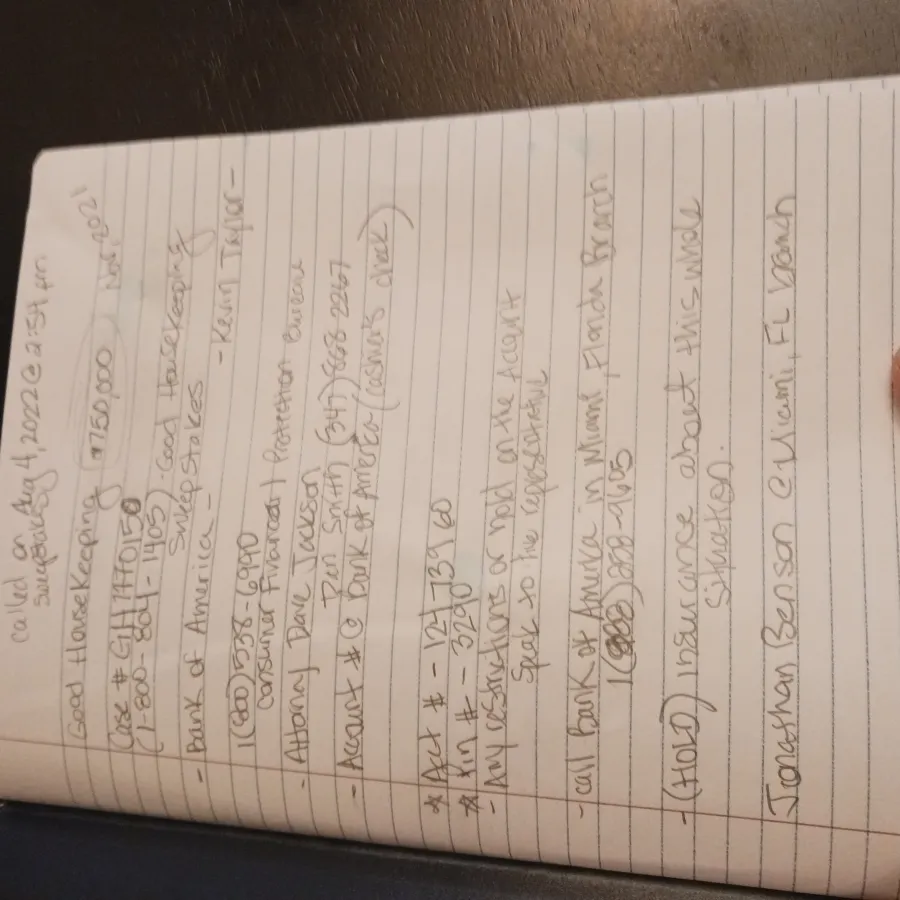 called on Aug 4, 2022 @ 2:54 pm
sweepstakes
Good Housekeeping $750,000 Nov. 2021
Case #
(1-800-804-1405) - Good Housekeeping
Sweepstakes
- Bank of America - - Kevin Taylor -
1(800) 538-6990
Consumer Financial Protection Bureau
- Attorny Dave Jackson
Smith (347) 668-2267
- Account # @ Bank of America (cashier's check)
* Act # - 124173960
* Pin # - 3290
- Any restrictions or hold on the Account
speak to the representative
- call Bank of America in Miami, Florida Branch
1(888) 228-9605
- (HOLD) insurance about this whole
situation.
Jonathan Benson @ Miami, FL branch